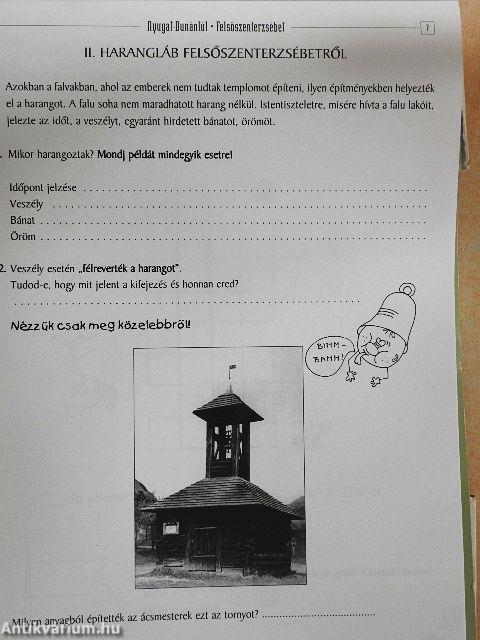 Nyugat-Dunántúl • Felsőszenterzsébet
7
II. HARANGLÁB FELSŐSZENTERZSÉBETRŐL
Azokban a falvakban, ahol az emberek nem tudtak templomot építeni, ilyen építményekben helyezték
el a harangot. A falu soha nem maradhatott harang nélkül. Istentiszteletre, misére hívta a falu lakóit,
jelezte az időt, a veszélyt, egyaránt hirdetett bánatot, örömöt.
. Mikor harangoztak? Mondj példát mindegyik esetre!
Időpont jelzése
Veszély
Bánat
Öröm
2. Veszély esetén „félreverték a harangot".
Tudod-e, hogy mit jelent a kifejezés és honnan ered?
Nézzük csak meg közelebbről!
BIMM-
BAMM!
Milyen anyagból építették az ácsmesterek ezt az tornyot?
Antikvarium.hu